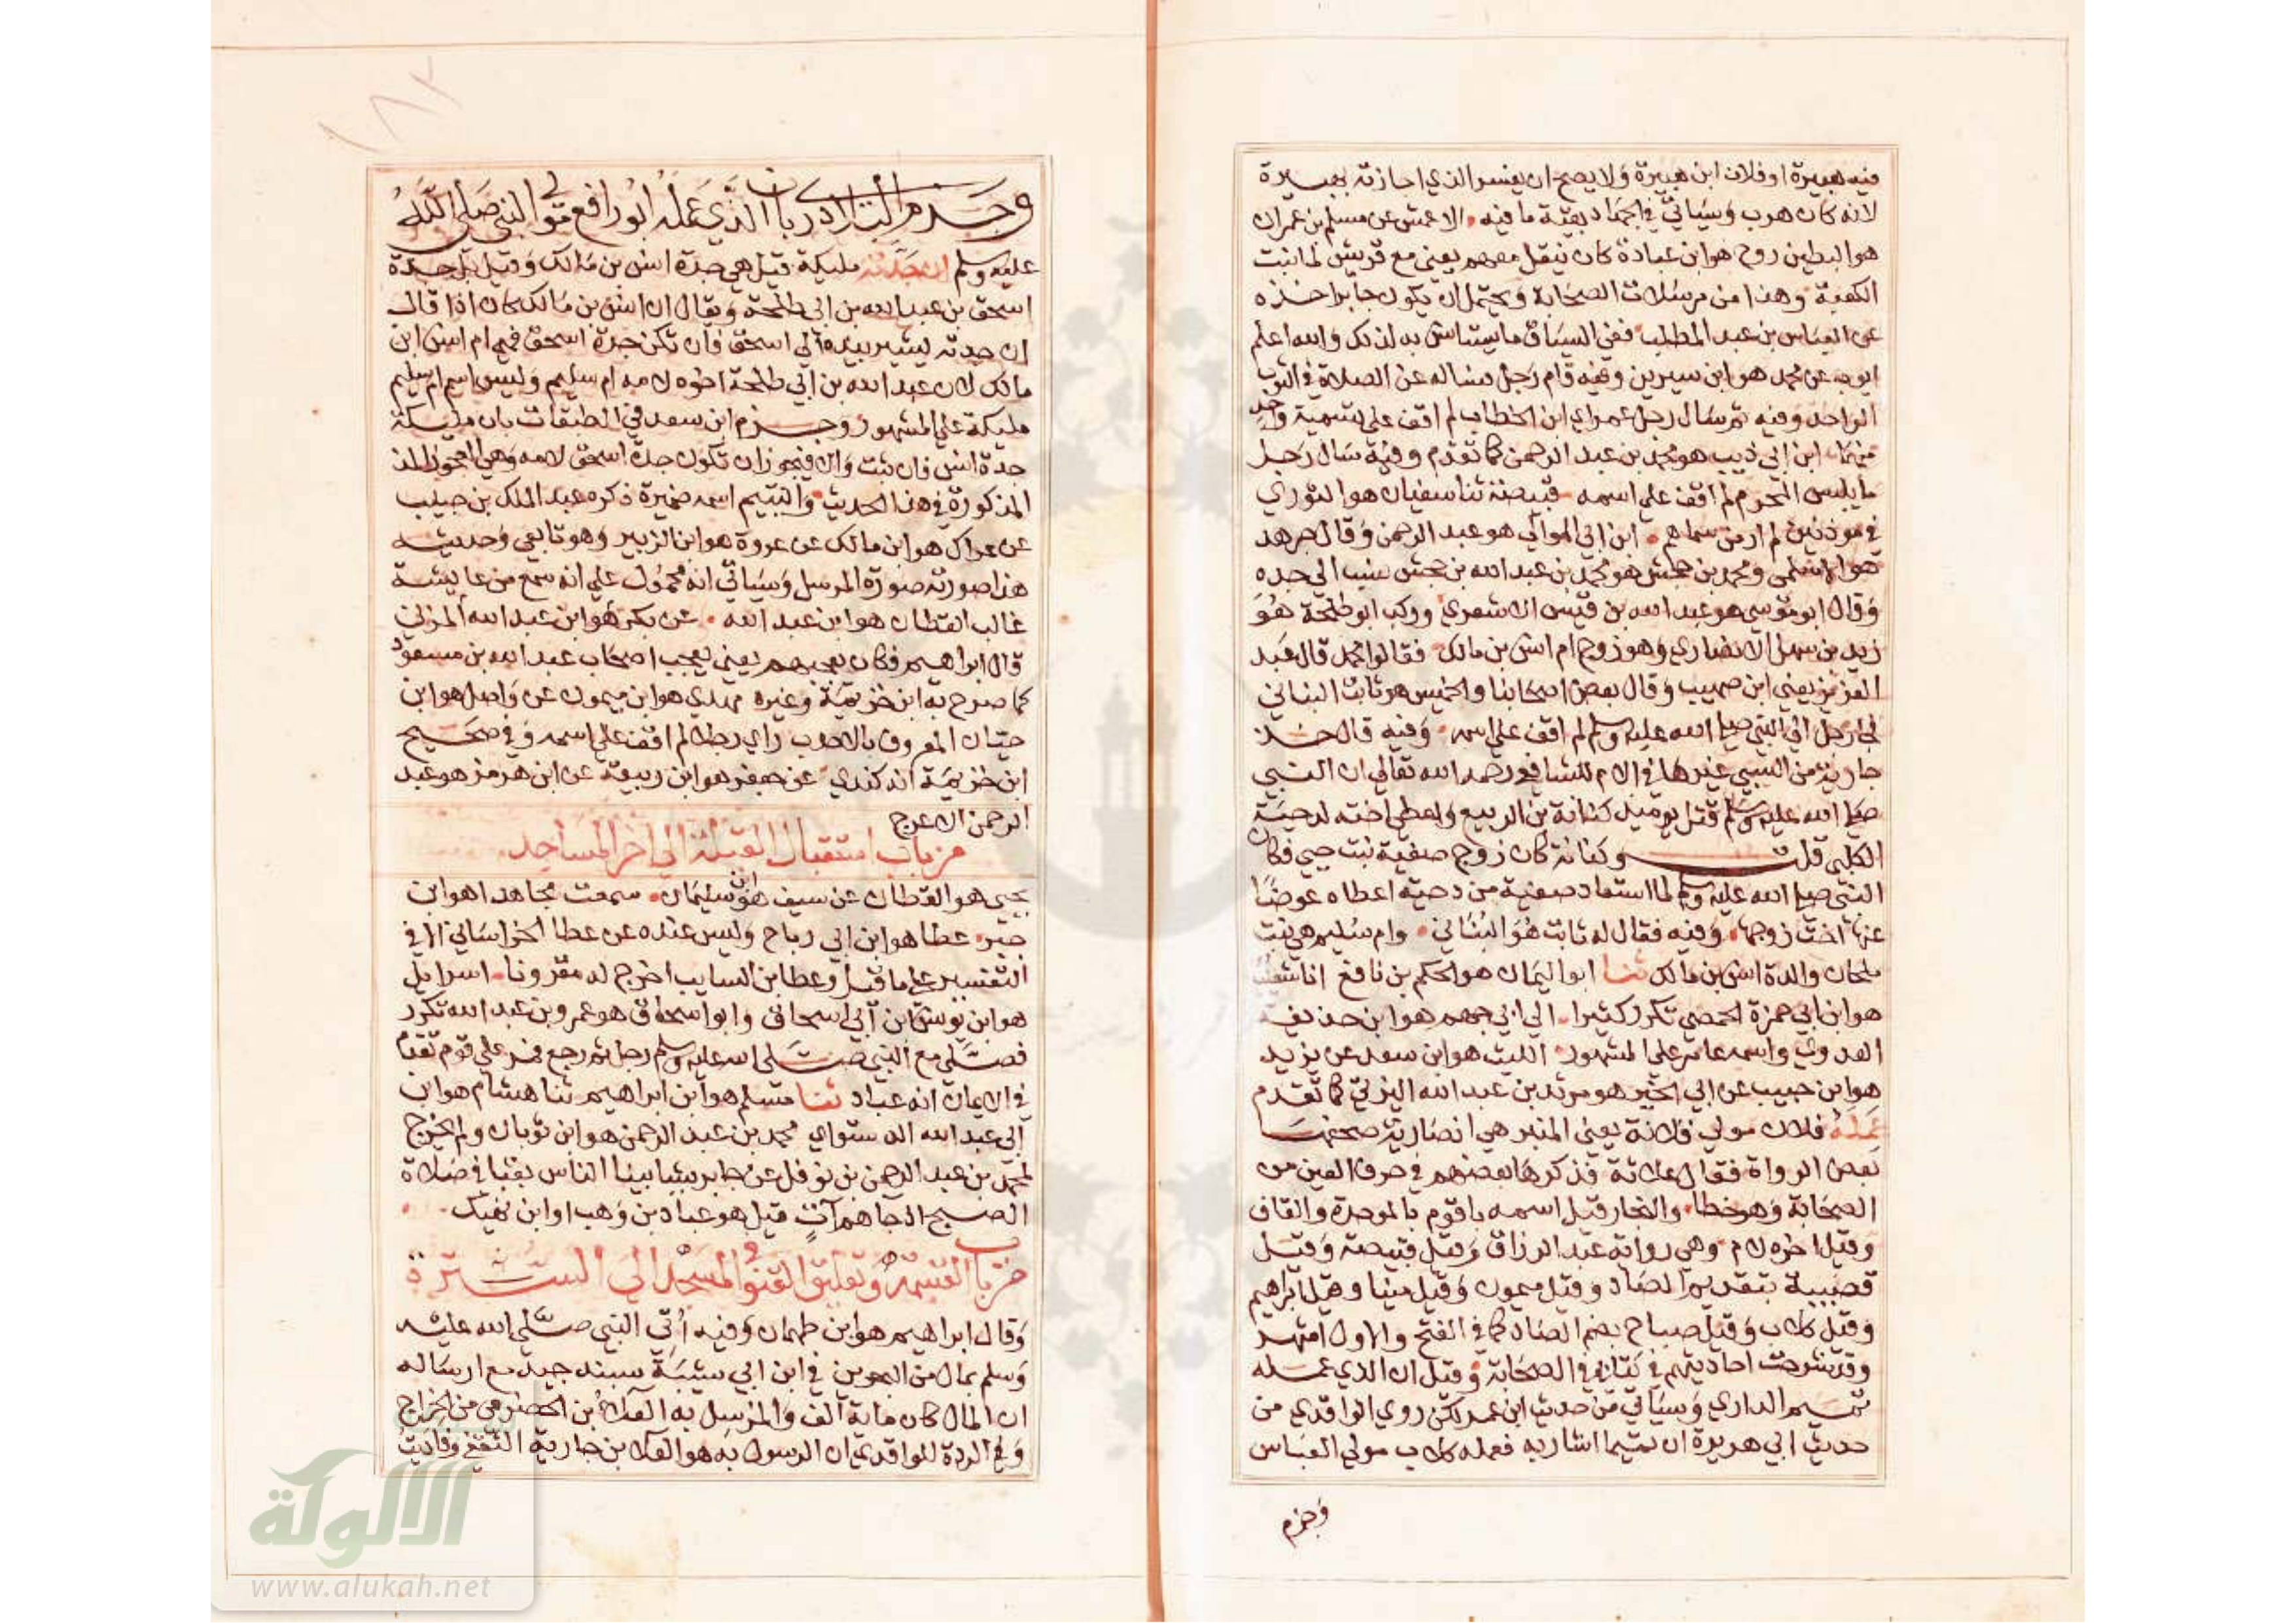 فيه هبيرة او فلان ابن هبيرة ولا يصح ان يفسر الذي اجازته بهبيرة
لانه كان هرب وسياتي في الجهاد بقية ما فيه الاعمش عن مسلم بن عمران
هو البطين روح هو ابن عبادة كان ينقل معهم يعني مع قريش لما بنت
الكعبة وهذا من مرسلات الصحابة ويحتمل ان يكون جابر اخذه
عن العباس بن عبد المطلب ففي السياق ما يستانس به لذلك والله اعلم
ايوب عن محمد هو ابن سيرين وفيه قام رجل فساله عن الصلاة في الثوب
الواحد وفيه ثم سال رجل عمر اي ابن الخطاب لم اقف على تسمية واحد
منهما ابن ابي ذيب هو محمد بن عبد الرحمن كما تقدم وفيه سال رجل
ما يلبس المحرم لم اقف على اسمه قبيصة ثنا سفيان هو الثوري
في موذنين لم ار من سماهم ابن ابي الموالي هو عبد الرحمن وقال جرهد
هو الاسلمي ومحمد بن جحش هو محمد بن عبد الله بن جحش ينسب الي جده
وقال ابو موسي هو عبد الله بن قيس الاشعري وركب ابو طلحة هو
زيد بن سهل الانصاري وهو زوج ام انس بن مالك فقالوا محمد قال عبد
العزيز يعني ابن صهيب وقال بعض اصحابنا والخميس هو ثابت البناني
فجا رجل الي النبي صلي الله عليه وسلم لم اقف على اسمه وفيه قال خذ
جارية من السبي غيرها في الام للشافعي رحمه الله تعالي ان النبي
صلي الله عليه وسلم قتل يوميذ كنانة بن الربيع واعطي اخته لدحية
الكلبي قلت وكنانة كان زوج صفية بنت حيي فكان
النبي صلي الله عليه وسلم لما استعاد صفية من دحية اعطاه عوضا
عنها اخت زوجها وفيه فقال له ثابت هو البناني وام سليم هي بنت
ملحان والدة انس بن مالك ثنا ابو اليمان هو الحكم بن نافع انا شعيب
هو ابن ابي حمزة الحمصي تكرر كثيرا الي ابي جهم هو ابن حذيفة
العدوي واسمه عامر على المشهور الليث هو ابن سعد عن يزيد
هو ابن حبيب عن ابي الخير هو مرثد بن عبد الله اليزني كما تقدم
عمله فلان مولي فلانة يعني المنبر هي انصارية صحفها
بعض الرواة فقال علاثة فذكرها بعضهم في حرف العين من
الصحابة وهو خطا والنجار قيل اسمه باقوم بالموحدة والقاف
وقيل اخره لام وهي رواية عبد الرزاق وقيل قبيصة وقيل
قصيبة بتقديم الصاد وقيل ميمون وقيل مينا وقيل ابراهيم
وقيل كلاب وقيل صباح بضم الصاد كما في الفتح والاول اشهر
وقد شرحت احاديثهم في كتابي في الصحابة وقيل ان الذي عمله
تميم الداري وسياتي من حديث ابن عمر لكن روي الواقدي من
حديث ابي هريرة ان تميما اشار به فعمله كلاب مولي العباس
وجزم
وجزم البلاذري بان الذي عمله ابو رافع مولى النبي صلى الله
عليه وسلم ان جدته مليكة قيل هي جدة انس بن مالك وقيل بل جدة
اسحق بن عبد الله بن ابي طلحة ويقال ان انس بن مالك كان اذا قال
ان جدته يشير بيده الي اسحق فان تكن جدة اسحق فهي ام انس ابن
مالك لان عبد الله بن ابي طلحة اخوه لامه ام سليم وليس اسم ام سليم
مليكة علي المشهور وجزم ابن سعد في الطبقات بان مليكة
جدة انس فان ثبت والا فيجوز ان تكون جدة اسحق لامه وهي
المذكورة في هذا الحديث واليتيم اسمه ضميرة ذكره عبد الملك بن حبيب
عن عراك هو ابن مالك عن عروة هو ابن الزبير وهو تابعي وحديثه
هذا صورته صورة المرسل وسياتي انه محمول علي انه سمع من عايشة
غالب القطان هو ابن عبد الله عن بكر هو ابن عبد الله المزني
قال ابراهيم فكان يعجبهم يعني يعجب اصحاب عبد الله بن مسعود
كما صرح به ابن خزيمة وغيره مهدي هو ابن ميمون عن واصل هو ابن
حيان المعروف بالاحدب راي رجلا لم اقف علي اسمه وفي صحيح
ابن خزيمة انه كندي عن جعفر هو ابن ربيعة عن ابن هرمز هو عبد
الرحمن الاعرج
من باب استقبال القبلة الي اخر المساجد
يحيي هو القطان عن سيف هو ابن سليمان سمعت مجاهدا هو ابن
جبر عطا هو ابن ابي رباح وليس عنده عن عطا الخراساني الا في
التفسير على ما قيل وعطا ابن السايب اخرج له مقرونا اسرايل
هو ابن يونس ابن ابي اسحاق وابو اسحاق هو عمرو بن عبد الله تكرر
فصلي مع النبي صلى الله عليه وسلم رجل ثم رجع فمر علي قوم تقدم
في الايمان انه عباد ثنا مسلم هو ابن ابراهيم ثنا هشام هو ابن
ابي عبد الله الدستواي محمد بن عبد الرحمن هو ابن ثوبان ولم يخرج
لمحمد بن عبد الرحمن بن نوفل عن جابر شيا بينا الناس بقبا في صلاة
الصبح اذ جاهم آت قيل هو عباد بن وهب او ابن نهيك
من باب القسمة وتعليق القنو في المسجد الى السترة
وقال ابراهيم هو ابن طهمان وفيه أتي النبي صلى الله عليه
وسلم بمال من البحرين في ابن ابي شيبة بسند جيد مع ارساله
ان المال كان ماية الف والمرسل به العلاء بن الحضرمي من الخراج
وفي الردة للواقدي ان الرسول به هو العلا بن جارية الثقفي
الألوكة
www.alukah.net